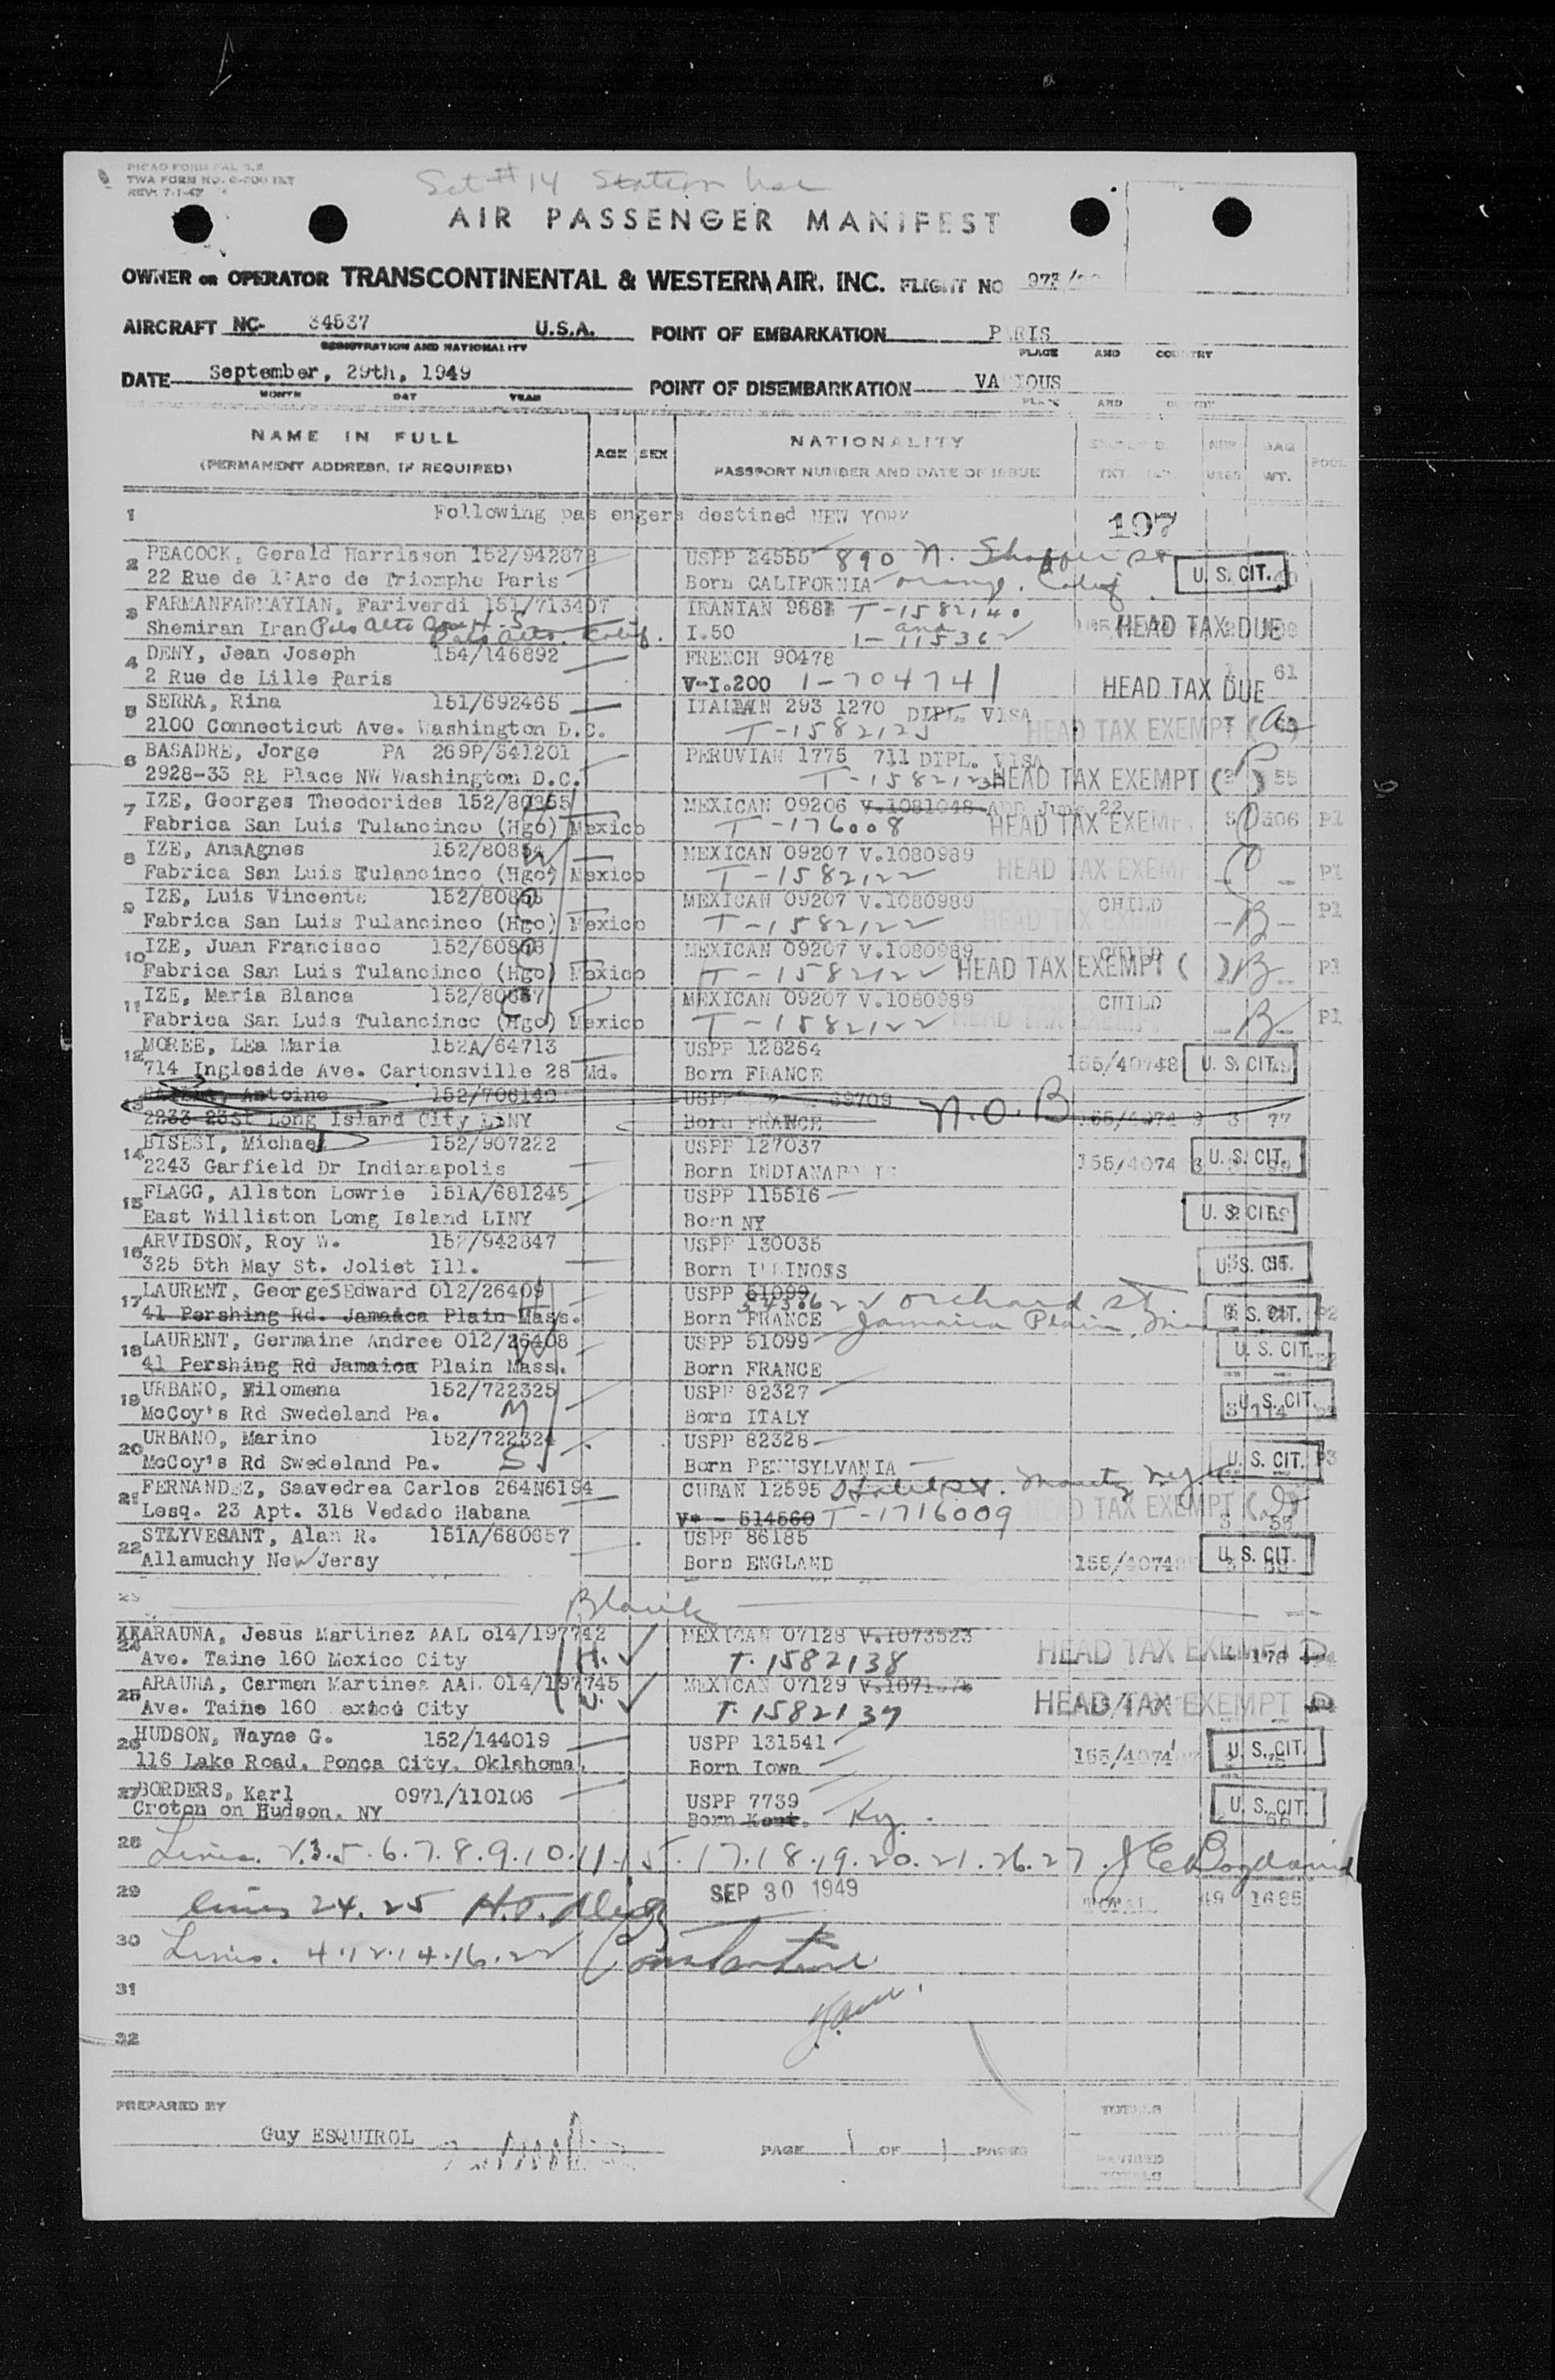 PICAO FORM FAL 3.2
TWA FORM NO. C-200 INT
REV. 7-1-47
Set #14 Station Use
AIR PASSENGER MANIFEST
OWNER OR OPERATOR TRANSCONTINENTAL & WESTERN AIR, INC. FLIGHT NO 973/
AIRCRAFT NC- 34537 U.S.A. POINT OF EMBARKATION PARIS
REGISTRATION AND NATIONALITY PLACE AND COUNTRY
DATE September, 29th, 1949 POINT OF DISEMBARKATION VARIOUS
MONTH DAY YEAR PLACE AND COUNTRY
NAME IN FULL AGE SEX NATIONALITY
(PERMANENT ADDRESS, IF REQUIRED) PASSPORT NUMBER AND DATE OF ISSUE BAG WT.
1 Following pas engers destined NEW YORK 107
2 PEACOCK, Gerald Harrisson 152/942878 USPP 24555 890 N. Shaffer St
22 Rue de l'Arc de Triomphe Paris Born CALIFORNIA Orange, Calif U. S. CIT.
3 FARMANFARMAYIAN, Fariverdi 151/713407 IRANIAN 9887 T-1582140
Shemiran Iran Palo Alto Calif. I.50 and 1-115362 HEAD TAX DUE
4 DENY, Jean Joseph 154/146892 FRENCH 90478
2 Rue de Lille Paris V-I.200 1-704741 HEAD TAX DUE 61
5 SERRA, Rina 151/692465 ITALIAN 293 1270 DIPL. VISA
2100 Connecticut Ave. Washington D.C. T-1582125 HEAD TAX EXEMPT (A)
6 BASADRE, Jorge PA 269P/541201 PERUVIAN 1775 711 DIPL. VISA
2928-33 RE Place NW Washington D.C. T-1582123 HEAD TAX EXEMPT ( ) 55
7 IZE, Georges Theodorides 152/80865 MEXICAN 09206 V.1081048 ADD June 22
Fabrica San Luis Tulancinco (Hgo) Mexico T-176008 HEAD TAX EXEMPT P1
8 IZE, AnaAgnes 152/80854 MEXICAN 09207 V.1080989
Fabrica San Luis Tulancinco (Hgo) Mexico T-1582122 HEAD TAX EXEMPT P1
9 IZE, Luis Vincente MEXICAN 09207 V.1080989 CHILD
Fabrica San Luis Tulancinco (Hgo) Mexico T-1582122 HEAD TAX EXEMPT B P1
10 IZE, Juan Francisco MEXICAN 09207 V.1080989 CHILD
Fabrica San Luis Tulancinco (Hgo) Mexico T-1582122 HEAD TAX EXEMPT ( ) B P1
11 IZE, Maria Blanca MEXICAN 09207 V.1080989 CHILD
Fabrica San Luis Tulancinco (Hgo) Mexico T-1582122 HEAD TAX EXEMPT B P1
12 MOREE, LEa Maria 152A/64713 USPP 128264
714 Ingleside Ave. Cartonsville 28 Md. Born FRANCE 155/40748 U. S. CIT.
13 Antoine 152/706140 USPP 39709 N.O.B
2233 23St Long Island City LINY Born FRANCE 155/4074 3 77
14 BISESI, Michael 152/907222 USPP 127037
2243 Garfield Dr Indianapolis Born INDIANAPOLIS 155/4074 U. S. CIT.
15 FLAGG, Allston Lowrie 151A/681245 USPP 115516
East Williston Long Island LINY Born NY U. S. CIT.
16 ARVIDSON, Roy W. 152/942847 USPP 130035
325 5th May St. Joliet Ill. Born ILLINOIS U. S. CIT.
17 LAURENT, GeorgeSEdward 012/26409 USPP 51099 Orchard St
41 Pershing Rd. Jamaica Plain Mass. Born FRANCE Jamaica Plain, U. S. CIT. P2
18 LAURENT, Germaine Andree 012/26408 USPP 51099
41 Pershing Rd Jamaica Plain Mass. Born FRANCE U. S. CIT.
19 URBANO, Filomena 152/722325 USPP 82327
McCoy's Rd Swedeland Pa. M Born ITALY U. S. CIT.
20 URBANO, Marino 152/722324 USPP 82328
McCoy's Rd Swedeland Pa. S Born PENNSYLVANIA U. S. CIT.
21 FERNANDEZ, Saavedrea Carlos 264N6194 CUBAN 12595
Lesq. 23 Apt. 318 Vedado Habana V* - 514560 T-1716009 HEAD TAX EXEMPT
22 STLYVESANT, Alan R. 151A/680657 USPP 86185
Allamuchy New Jersy Born ENGLAND 155/4074 U. S. CIT.
23 Blank
24 ARAUNA, Jesus Martinez AAL o14/197742 MEXICAN 07128 V.1073523
Ave. Taine 160 Mexico City H. T.1582138 HEAD TAX EXEMPT D
25 ARAUNA, Carmen Martines AAL 014/197745 MEXICAN 07129
Ave. Taine 160 City W. T.1582137 HEAD TAX EXEMPT D
26 HUDSON, Wayne G. 152/144019 USPP 131541
116 Lake Road, Ponca City, Oklahoma. Born Iowa 155/4074 U. S. CIT.
27 BORDERS, Karl 0971/110106 USPP 7739
Croton on Hudson. NY Born Kent. Ky. U. S. CIT. 66
28 Lines. 2.3.5.6.7.8.9.10.11.15.17.18.19.20.21.26.27.
29 lines 24.25 SEP 30 1949 TOTAL 49 1685
30 Lines. 4.12.14.16.22 Constantine
31
32
PREPARED BY Guy ESQUIROL PAGE 1 OF 1 PAGES
TOTALS
REVISED TOTALS